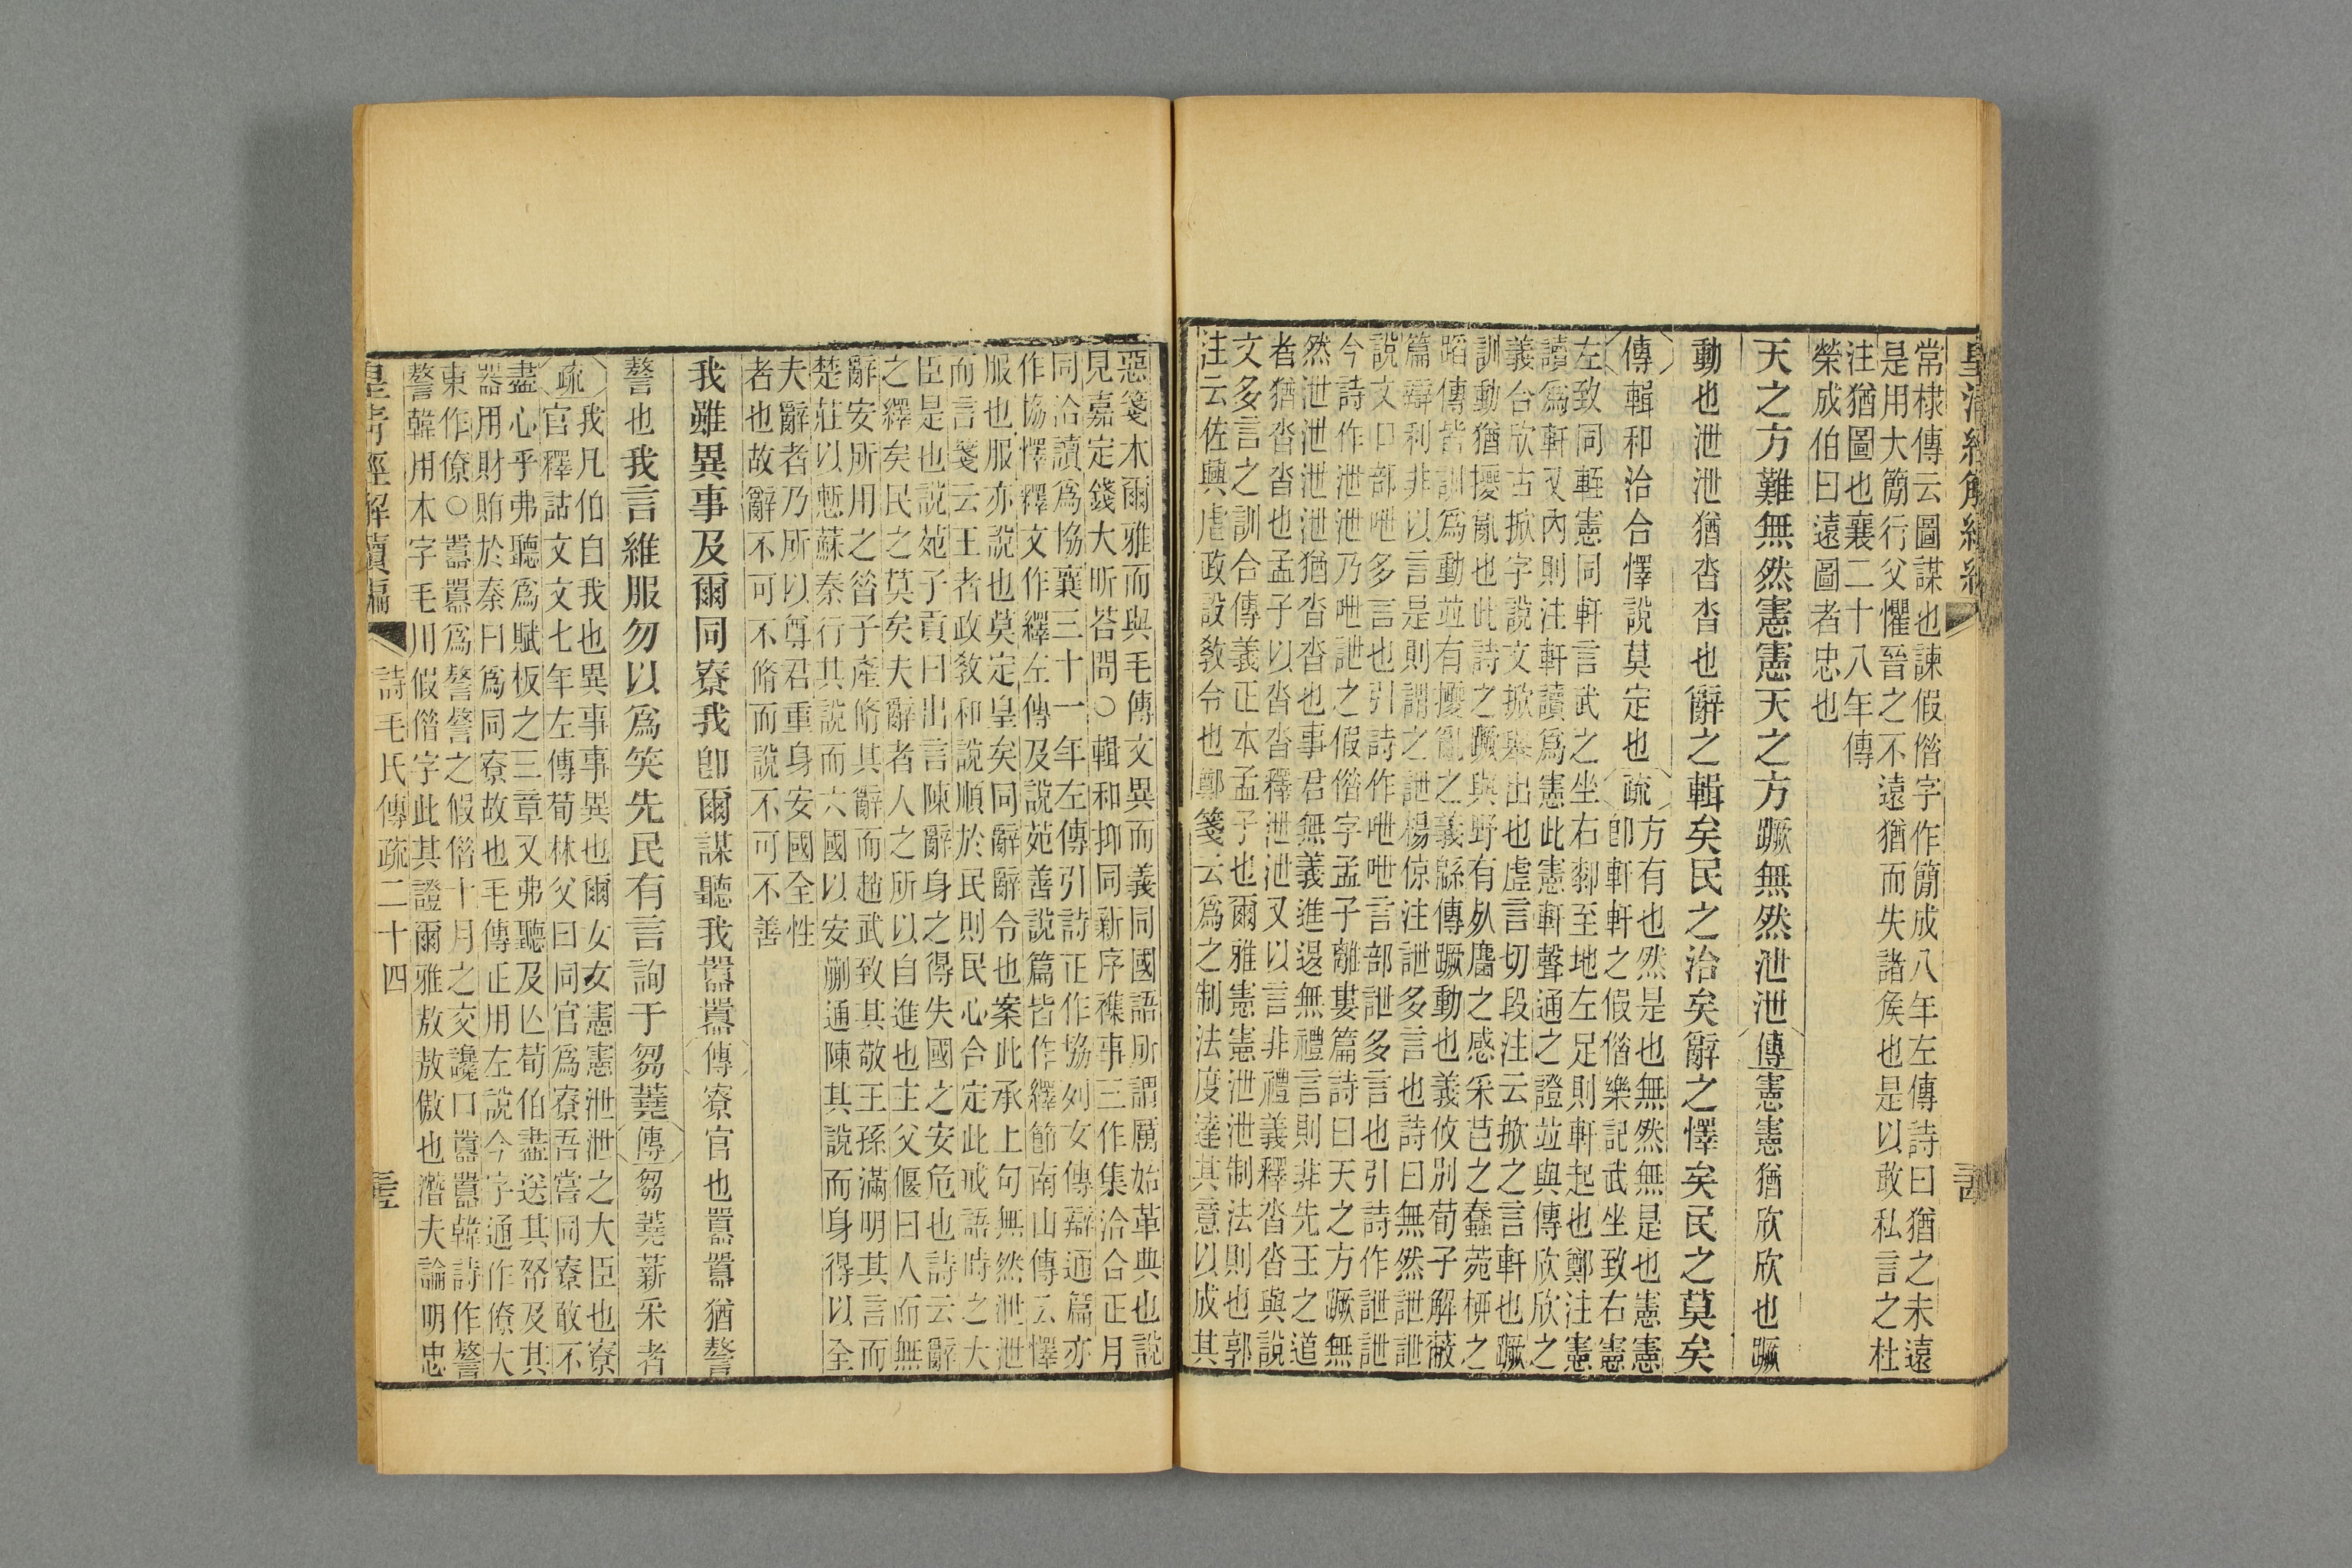 皇清經解續編
常棣傳云圖謀也諫假偺字作簡成八年左傳詩曰猶之未遠
是用大簡行父懼晉之不遠猶而失諸矦也是以敢私言之杜
注猶圖也襄二十八年傳
榮成伯曰遠圖者忠也
天之方難無然憲憲天之方蹶無然泄泄傳憲憲猶欣欣也蹶
動也泄泄猶沓沓也辭之輯矣民之洽矣辭之懌矣民之莫矣
傳輯和洽合懌說莫定也疏方有也然是也無然無是也憲憲
卽軒軒之假偺樂記武坐致右憲
左致同輊憲同軒言武之坐右郀至地左足則軒起也鄭注憲
讀爲軒又內則注軒讀爲憲此憲軒聲通之證竝與傳欣欣之
義合欣古掀字說文掀舉出也虛言切段注云掀之言軒也蹶
訓動猶擾亂也此詩之蹶與野有𣦸麕之感采芑之蠢菀柳之
蹈傳皆訓爲動竝有擾亂之義緜傳蹶動也義攸別荀子解蔽
篇辯利非以言是則謂之詍楊倞注詍多言也詩曰無然詍詍
說文口部呭多言也引詩作呭呭言部詍多言也引詩作詍詍
今詩作泄泄乃呭詍之假偺字孟子離婁篇詩曰天之方蹶無
然泄泄泄泄猶沓沓也事君無義進退無禮言則非先王之道
者猶沓沓也孟子以沓沓釋泄泄又以言非禮義釋沓沓與說
文多言之訓合傳義正本孟子也爾雅憲憲泄泄制法則也郭
注云佐興虐政設敎令也鄭箋云爲之制法度達其意以成其
惡箋本爾雅而與毛傳文異而義同國語所謂厲始革典也說
見嘉定錢大昕荅問○輯和抑同新序襍事三作集洽合正月
同洽讀爲協襄三十一年左傳引詩正作協列女傳辯通篇亦
作協懌釋文作繹左傳及說苑善說篇皆作繹節南山傳云懌
服也服亦說也莫定皇矣同辭辭令也案此承上句無然泄泄
而言箋云王者政敎和說順於民則民心合定此戒語時之大
臣是也說苑子貢曰出言陳辭身之得失國之安危也詩云辭
之繹矣民之莫矣夫辭者人之所以自進也主父偃曰人而無
辭安所用之昝子產脩其辭而趙武致其敬王孫滿明其言而
楚莊以慙蘇秦行其說而六國以安蒯通陳其說而身得以全
夫辭者乃所以尊君重身安國全性
者也故辭不可不脩而說不可不善
我雖異事及爾同寮我卽爾謀聽我囂囂傳寮官也囂囂猶謷
謷也我言維服勿以爲笑先民有言詢于芻蕘傳芻蕘薪采者
疏我凡伯自我也異事事異也爾女女憲憲泄泄之大臣也寮
官釋詁文文七年左傳荀林父曰同官爲寮吾嘗同寮敢不
盡心乎弗聽爲賦板之三章又弗聽及亾荀伯盡送其帑及其
器用財賄於秦曰爲同寮故也毛傳正用左說今字通作僚大
東作僚○囂囂爲謷謷之假偺十月之交讒口囂囂韓詩作謷
謷韓用本字毛用假偺字此其證爾雅敖敖傲也潛夫論明忠
皇清經解續編
詩毛氏傳疏二十四